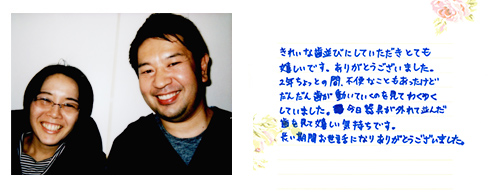 きれいな歯並びにしていただきとても
嬉しいです。ありがとうございました。
2年ちょっとの間、不便なこともあったけど
だんだん歯が動いていくのを見てわくわく
していました。今日器具が外れて並んだ
歯を見て嬉しい気持ちです。
長い期間お世話になりありがとうございました。